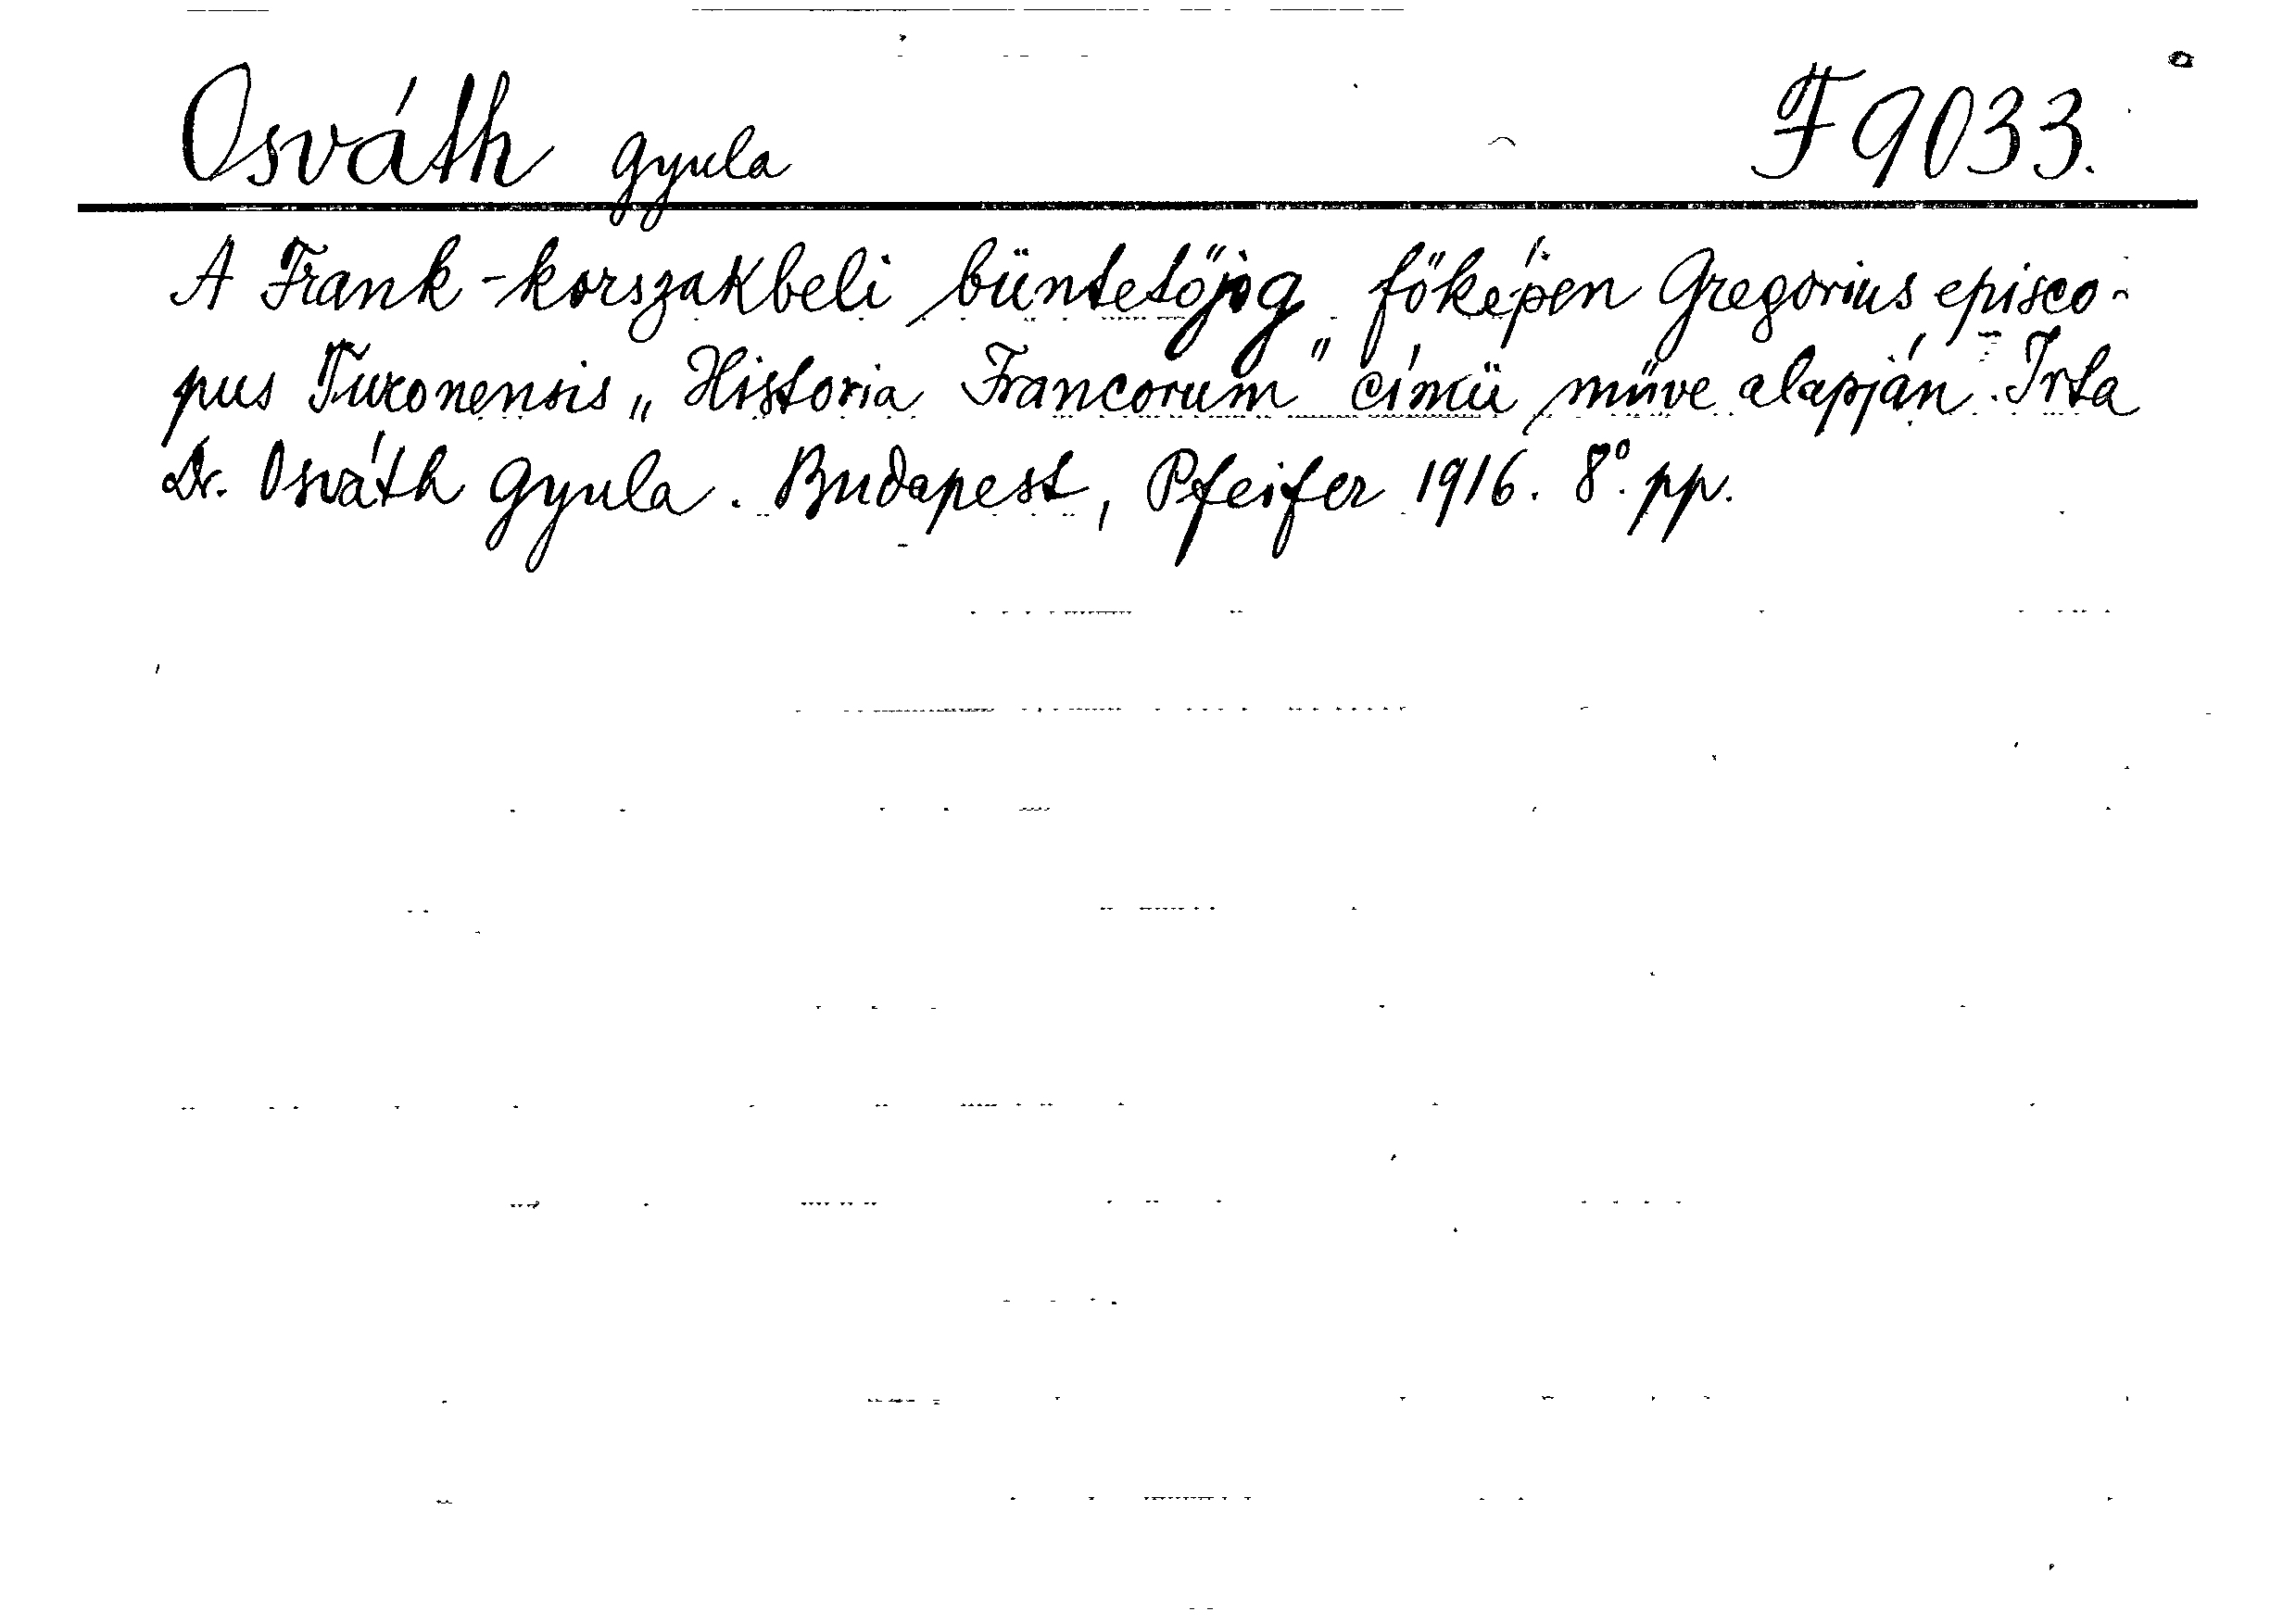 Osváth Gyula F 9033.
A Frank-korszakbeli büntetőjog főképen Gregorius episco-
pus Turonensis „Historia Francorum" című műve alapján. Irta
Dr. Osváth Gyula. Budapest, Pfeifer 1916. 8°. pp.